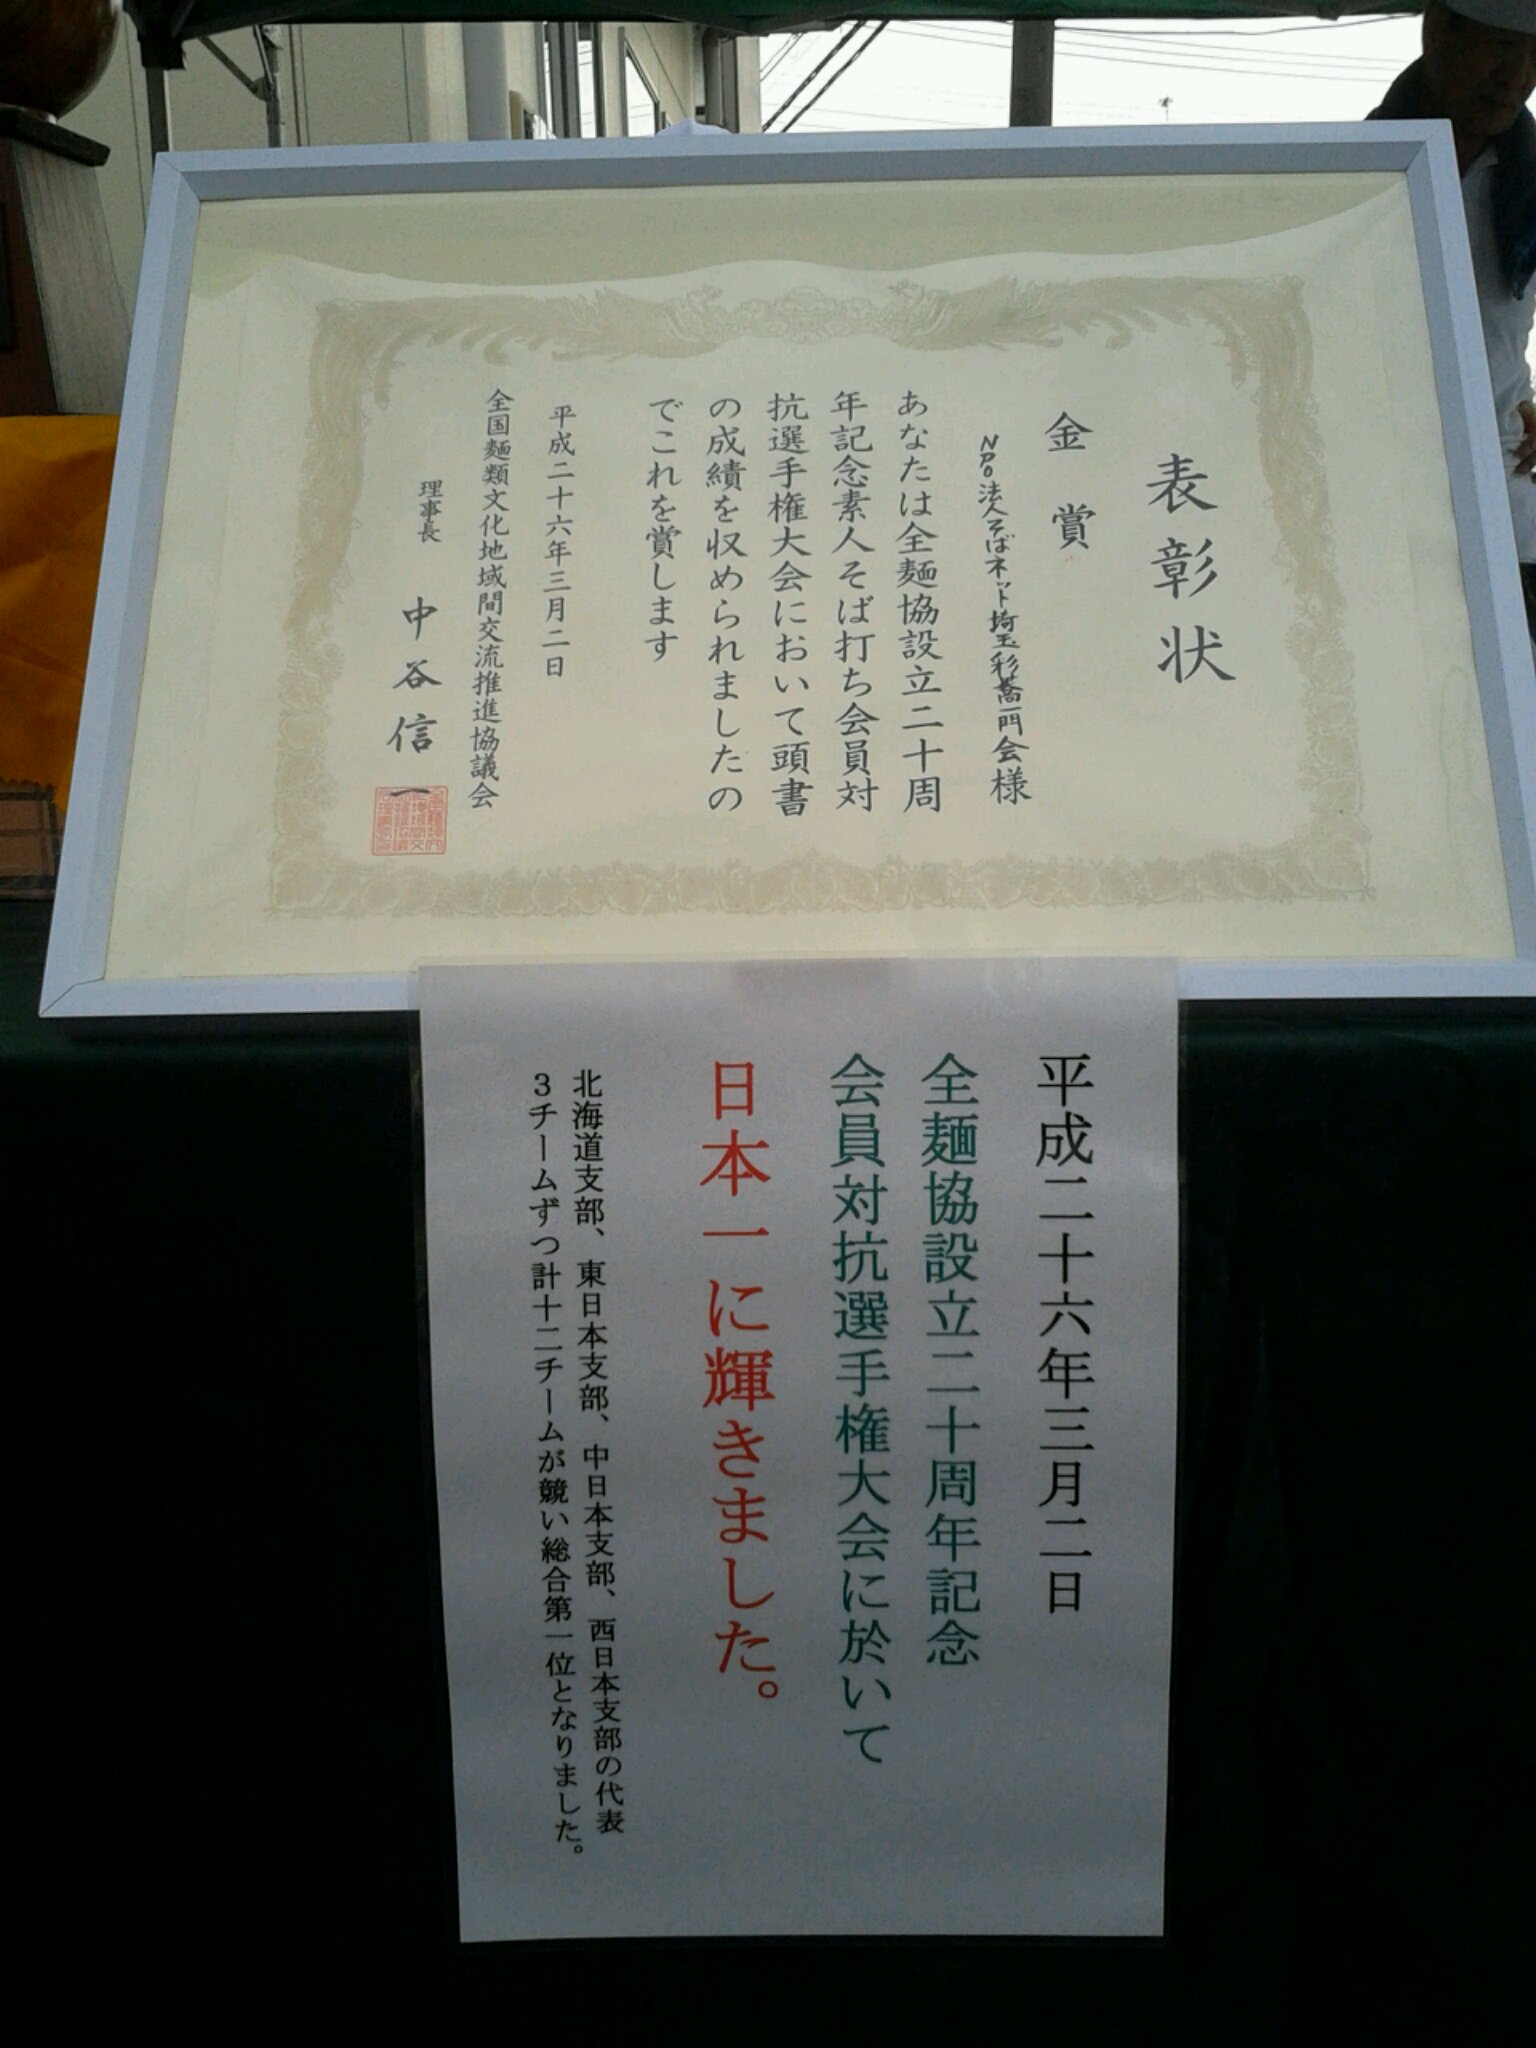 表彰状
金賞
NPO法人そばネット埼玉彩蕎一門会様
あなたは全麺協設立二十周
年記念素人そば打ち会員対
抗選手権大会において頭書
の成績を収められましたの
でこれを賞します
平成二十六年三月二日
全国麺類文化地域間交流推進協議会
理事長 中谷信一
平成二十六年三月二日
全麺協設立二十周年記念
会員対抗選手権大会に於いて
日本一に輝きました。
北海道支部、東日本支部、中日本支部、西日本支部の代表
3チームずつ計十二チームが競い総合第一位となりました。